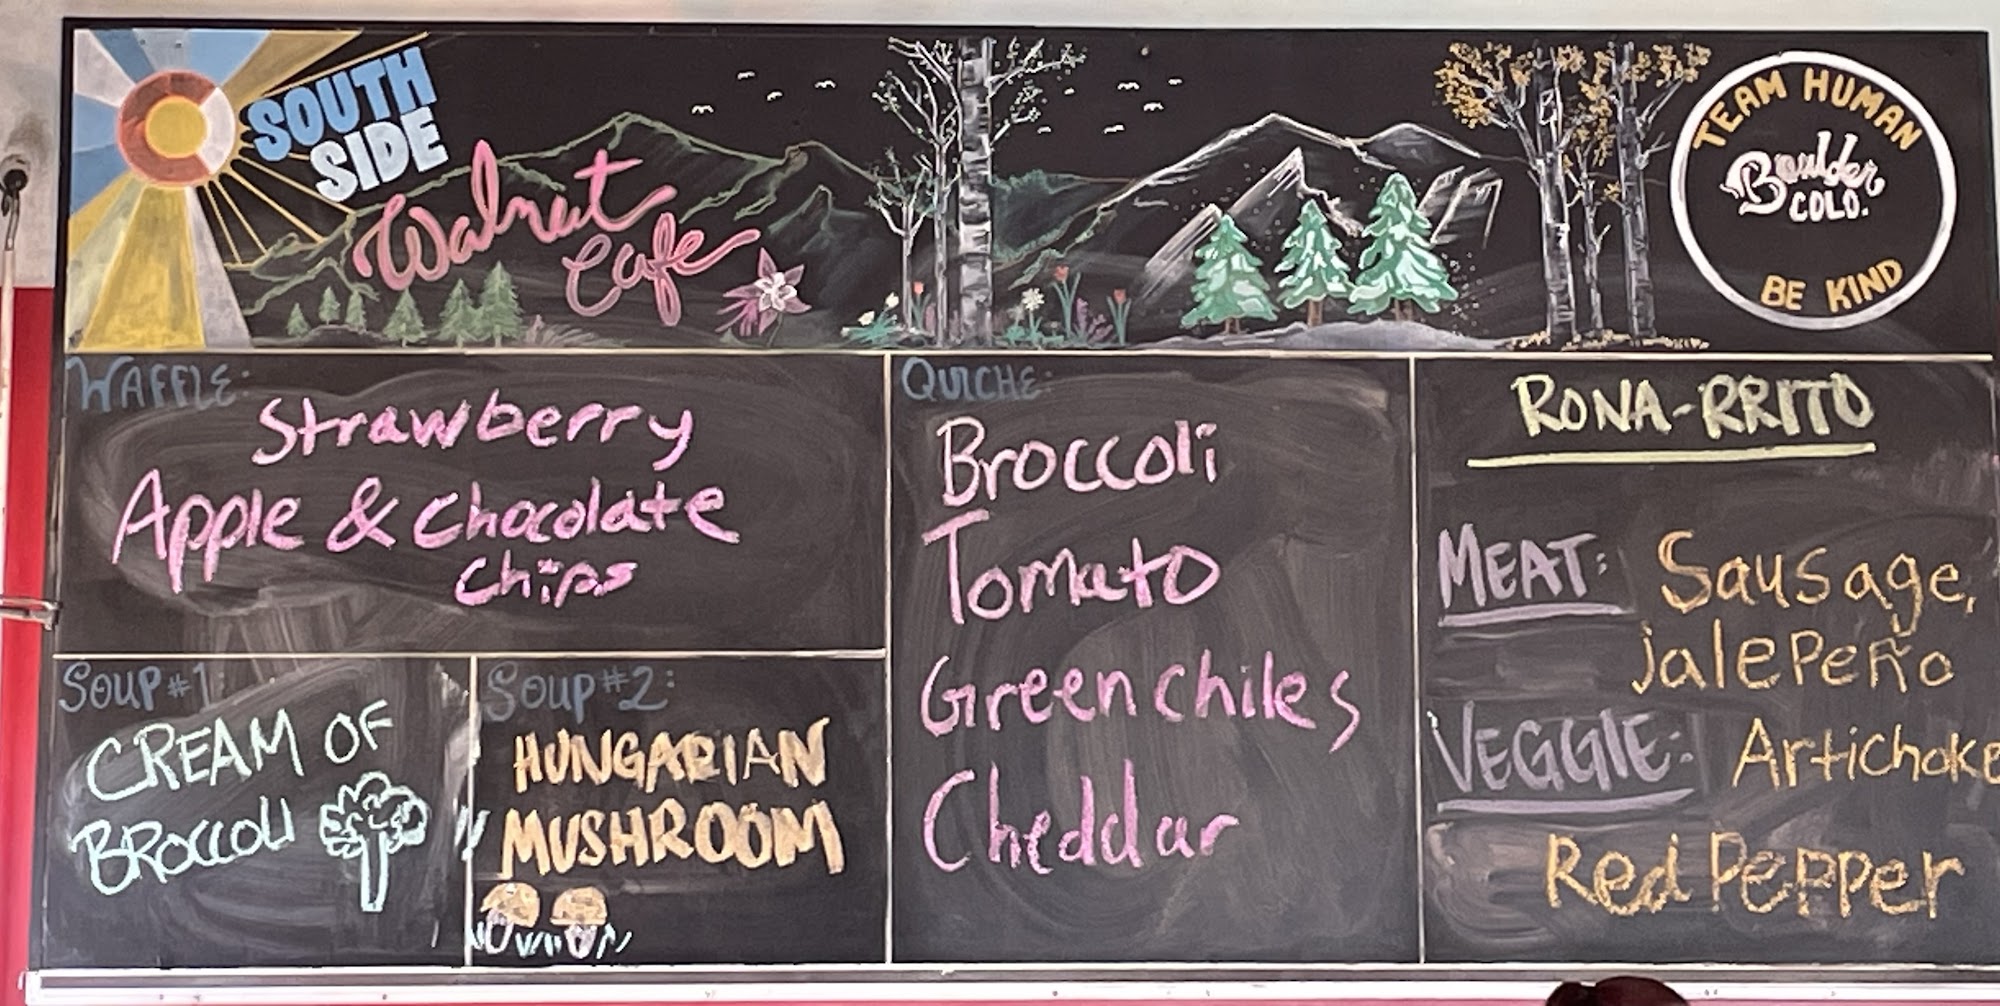 SOUTH
SIDE
Walnut
Cafe
TEAM HUMAN
Boulder
COLO.
BE KIND
WAFFLE:
Strawberry
Apple & Chocolate
Chips
SOUP #1:
CREAM OF
BROCCOLI
SOUP #2:
HUNGARIAN
MUSHROOM
QUICHE:
Broccoli
Tomato
Green chiles
Cheddar
RONA-RRITO
MEAT: Sausage,
jalepeño
VEGGIE: Artichoke
Red Pepper